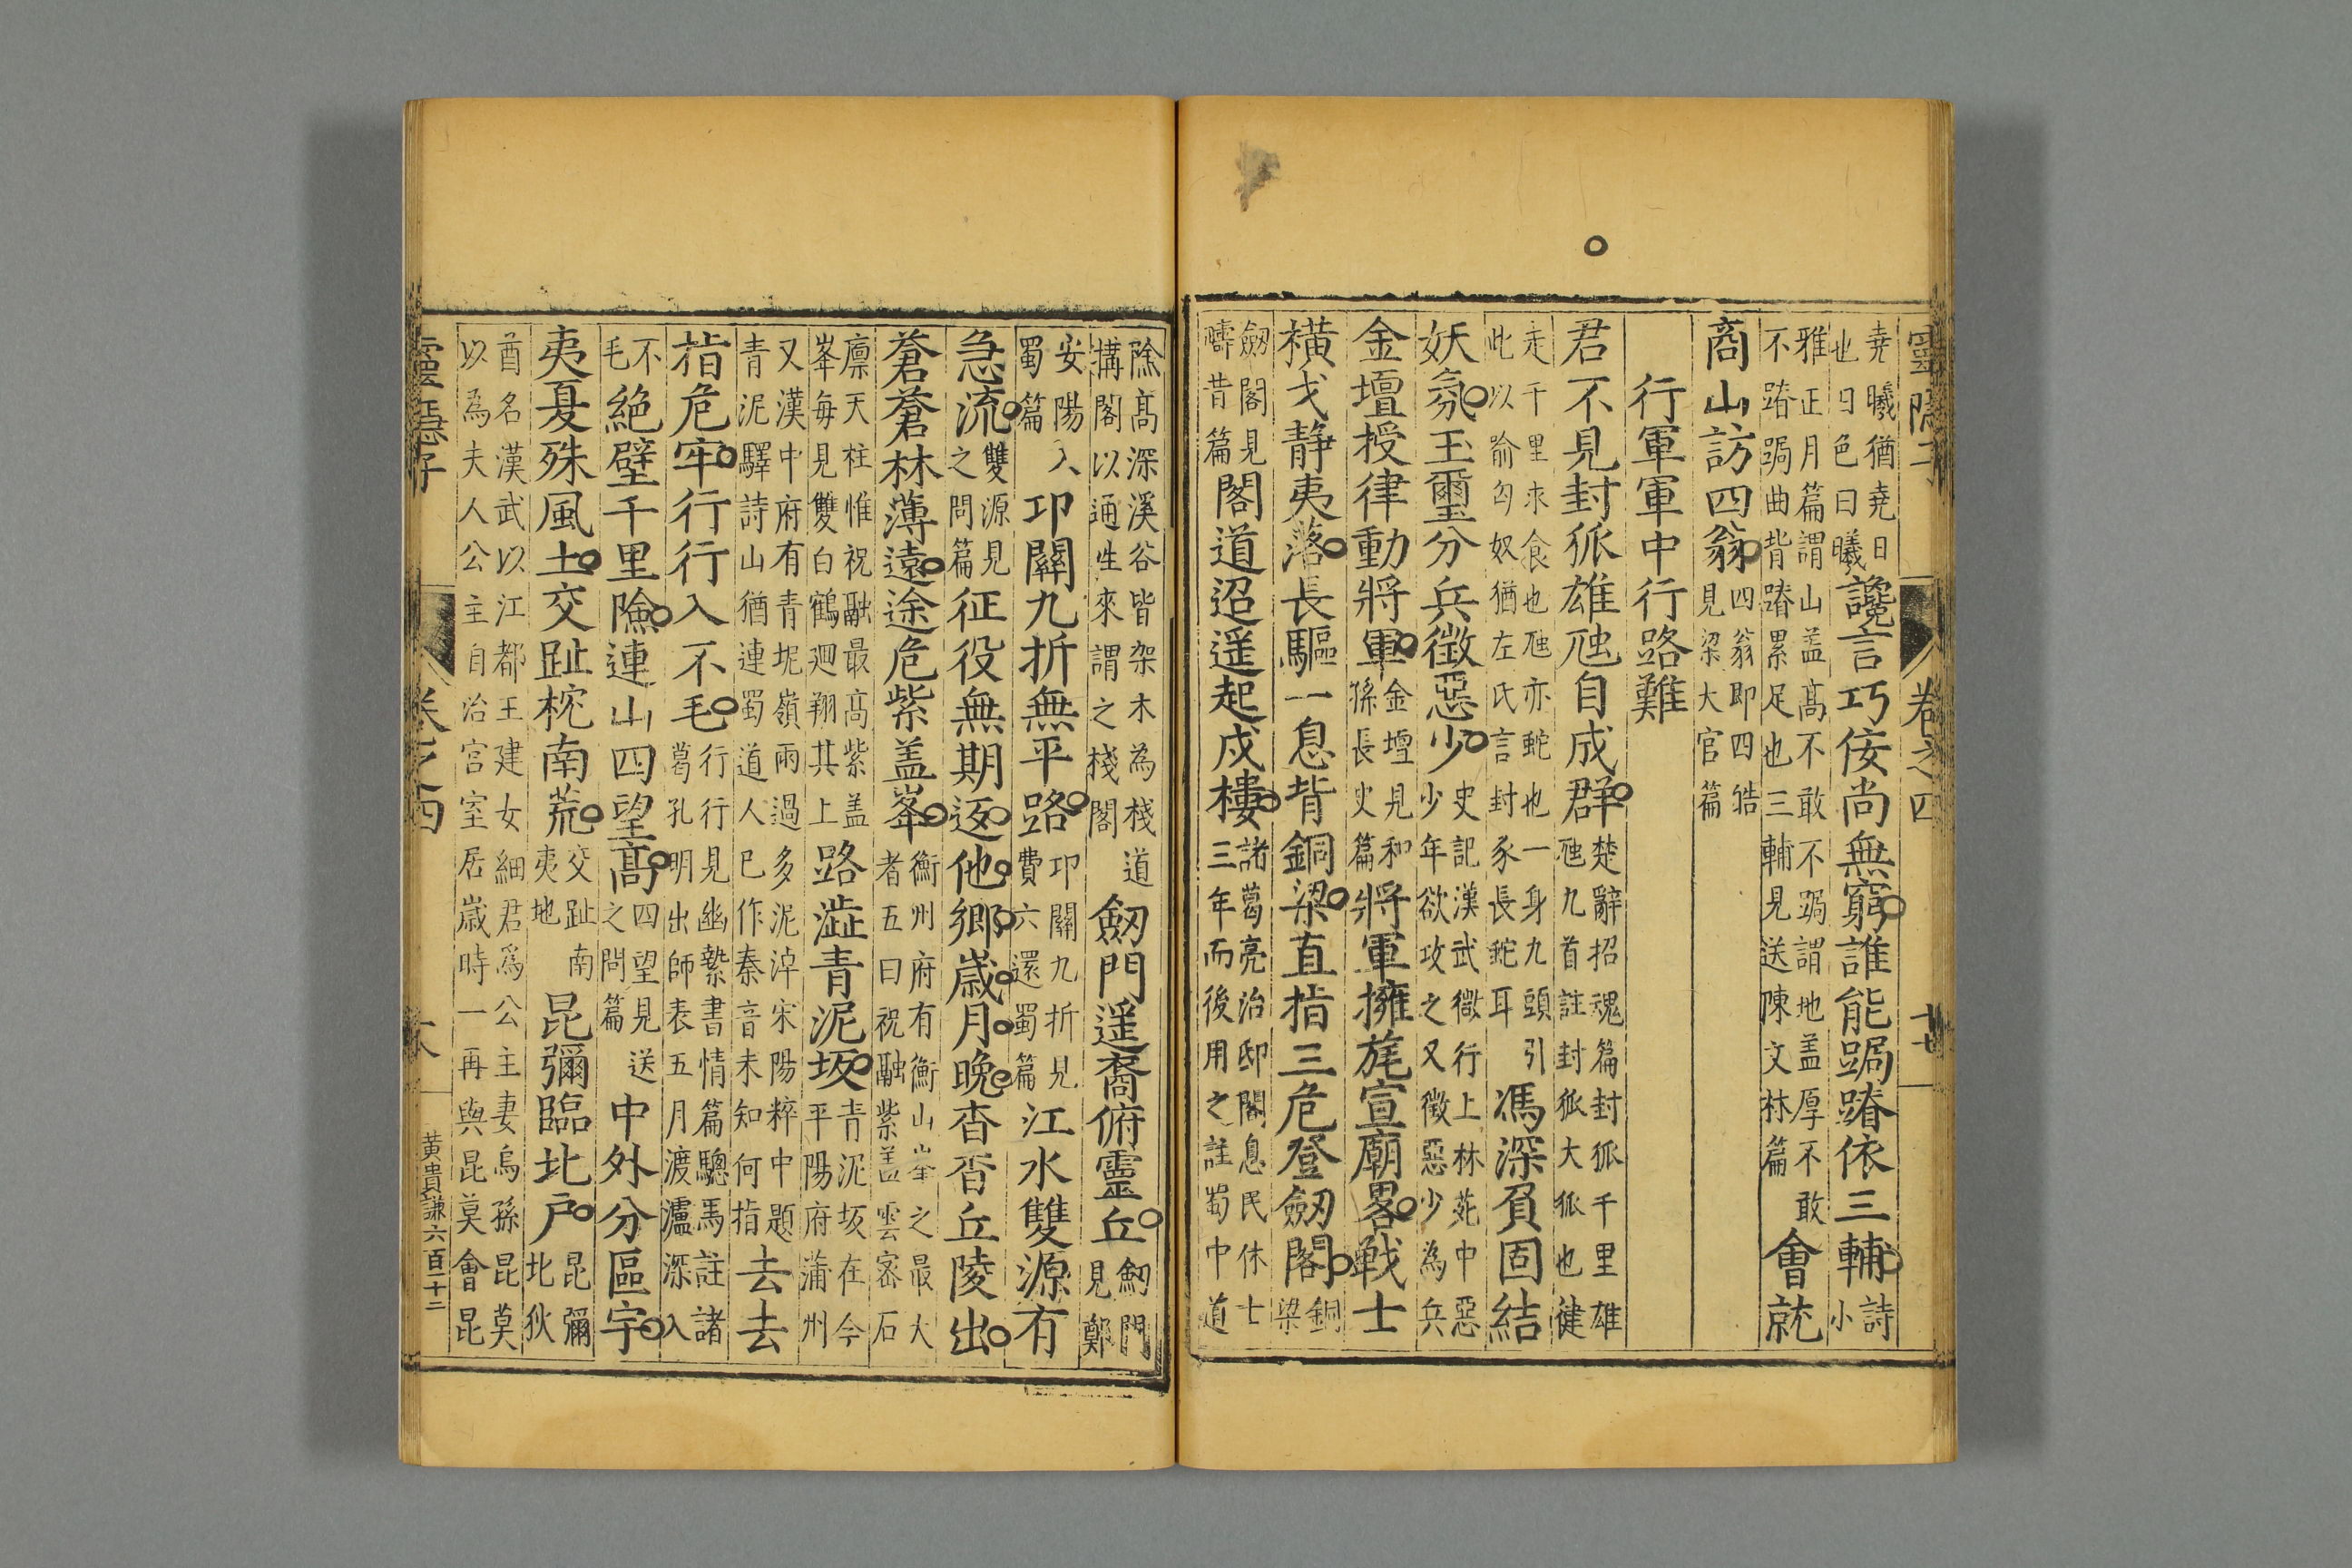 堯曦猶堯日
也日色曰曦
讒言巧佞尚無窮誰能跼蹐依三輔
詩
小
雅正月篇謂山盖高不敢不跼謂地盖厚不敢
不蹐跼曲背蹐累足也三輔見送陳文林篇
會就
商山訪四翁
四翁即四皓
見梁大官篇
行軍軍中行路難
君不見封狐雄虺自成群
楚辭招魂篇封狐千里雄
虺九首註封狐大狐也健
走千里求食也虺亦蛇也一身九頭引
此以喻匈奴猶左氏言封豕長蛇耳
馮深負固結
妖氛玉璽分兵徵惡少
史記漢武微行上林苑中惡
少年欲攻之又徵惡少為兵
金壇授律動將軍
金壇見和
孫長史篇
將軍擁旄宣廟畧戰士
橫戈静夷落長驅一息背銅梁直指三危登劒閣
銅
梁
劒閣見
疇昔篇
閣道迢遥起戍樓
諸葛亮治邸閣息民休士
三年而後用之註蜀中道
險高深溪谷皆架木為棧道
搆閣以通往來謂之棧閣
劒門遥裔俯靈丘
劒門
見鄭
安陽入
蜀篇
邛關九折無平路
邛關九折見
費六還蜀篇
江水雙源有
急流
雙源見
之問篇
征役無期返他鄉歲月晚杳杳丘陵出
蒼蒼林薄遠途危紫盖峯
衡州府有衡山峯之最大
者五曰祝融紫盖雲密石
廪天柱惟祝融最高紫盖
峯每見雙白鶴廻翔其上
路澁青泥坂
青泥坂在今
平陽府蒲州
又漢中府有青坭嶺雨過多泥淖宋陽粹中題
青泥驛詩山猶連蜀道人已作秦音未知何指
去去
指危牢行行入不毛
行行見幽縶書情篇驄馬註諸
葛孔明出師表五月渡瀘深入
不
毛
絕壁千里險連山四望高
四望見送
之問篇
中外分區宇
夷夏殊風土交趾枕南荒
交趾南
夷地
昆彌臨北戶
昆彌
北狄
酋名漢武以江都王建女細君為公主妻烏孫昆莫
以為夫人公主自治宮室居歲時一再與昆莫會昆
卷之四
廿
黃貴謙六百二十二